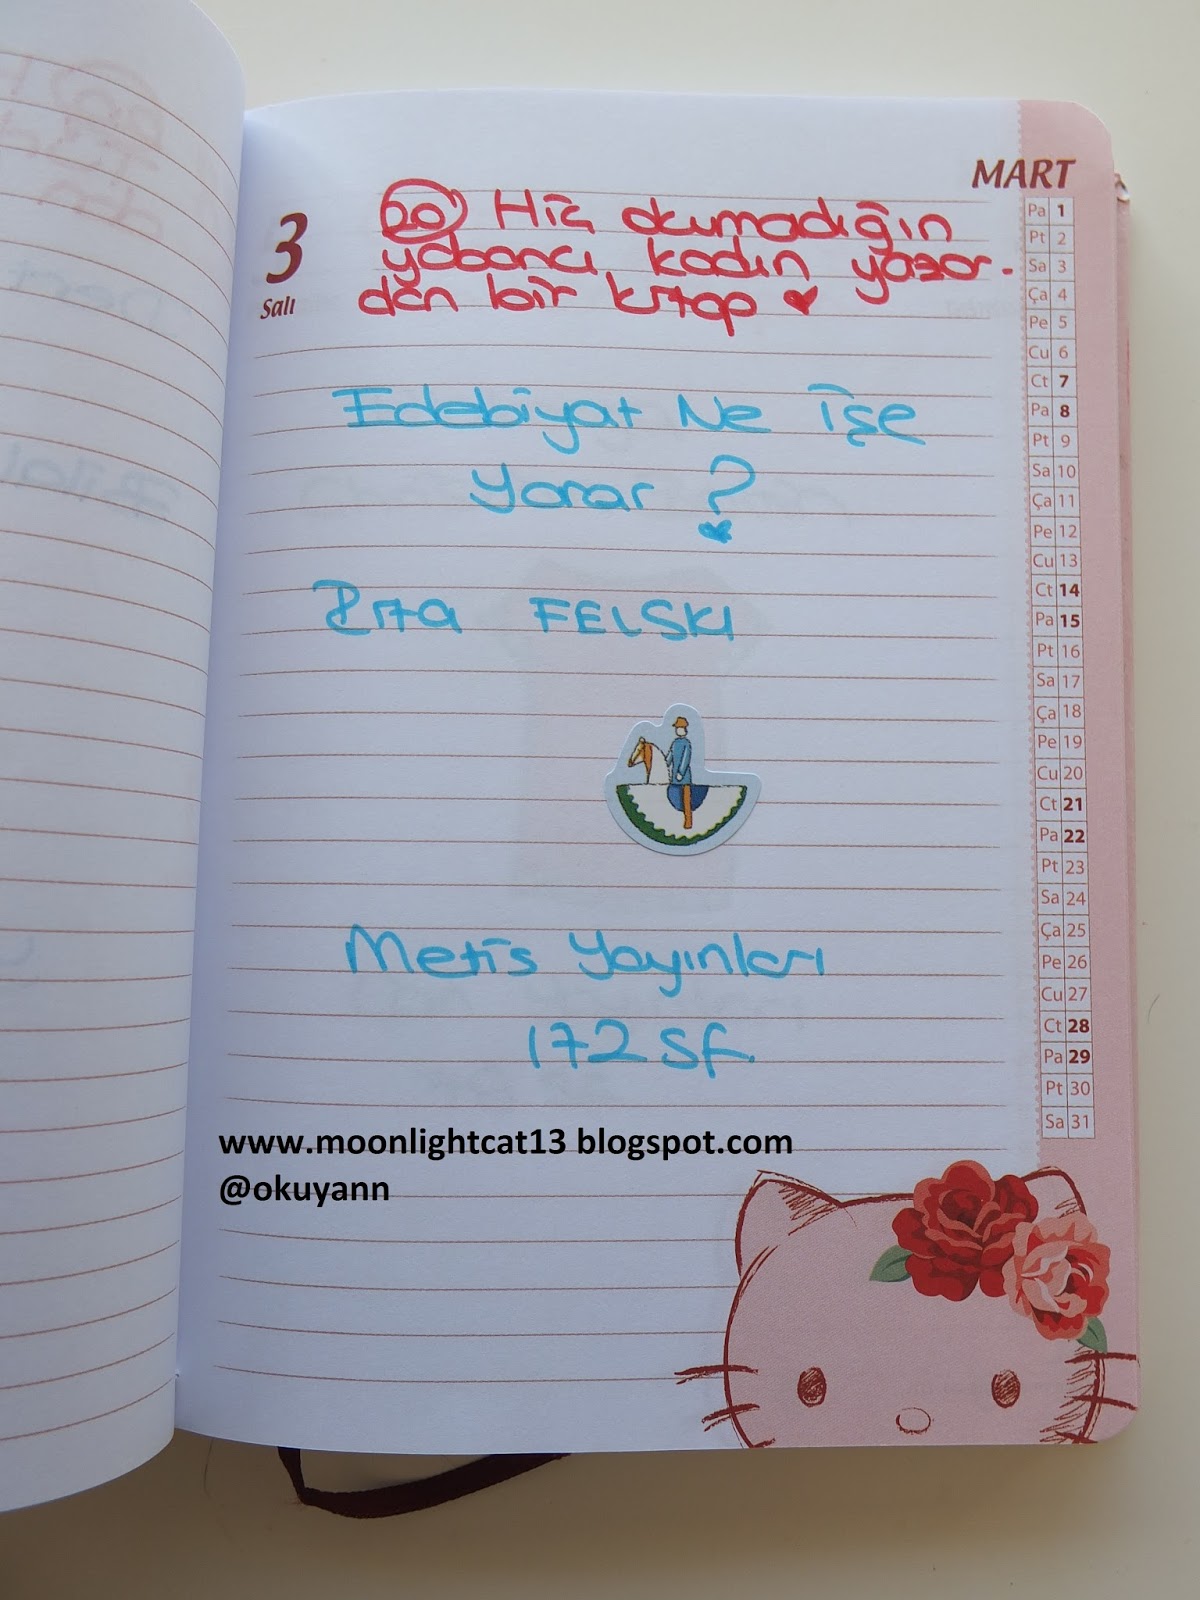 MART
3
Salı
20 Hiç okumadığın
yabancı kadın yazar-
dan bir kitap
Edebiyat Ne İşe
Yarar ?
Rita FELSKI
Metis Yayınları
172 sf.
www.moonlightcat13 blogspot.com
@okuyann
Pa 1
Pt 2
Sa 3
Ça 4
Pe 5
Cu 6
Ct 7
Pa 8
Pt 9
Sa 10
Ça 11
Pe 12
Cu 13
Ct 14
Pa 15
Pt 16
Sa 17
Ça 18
Pe 19
Cu 20
Ct 21
Pa 22
Pt 23
Sa 24
Ça 25
Pe 26
Cu 27
Ct 28
Pa 29
Pt 30
Sa 31